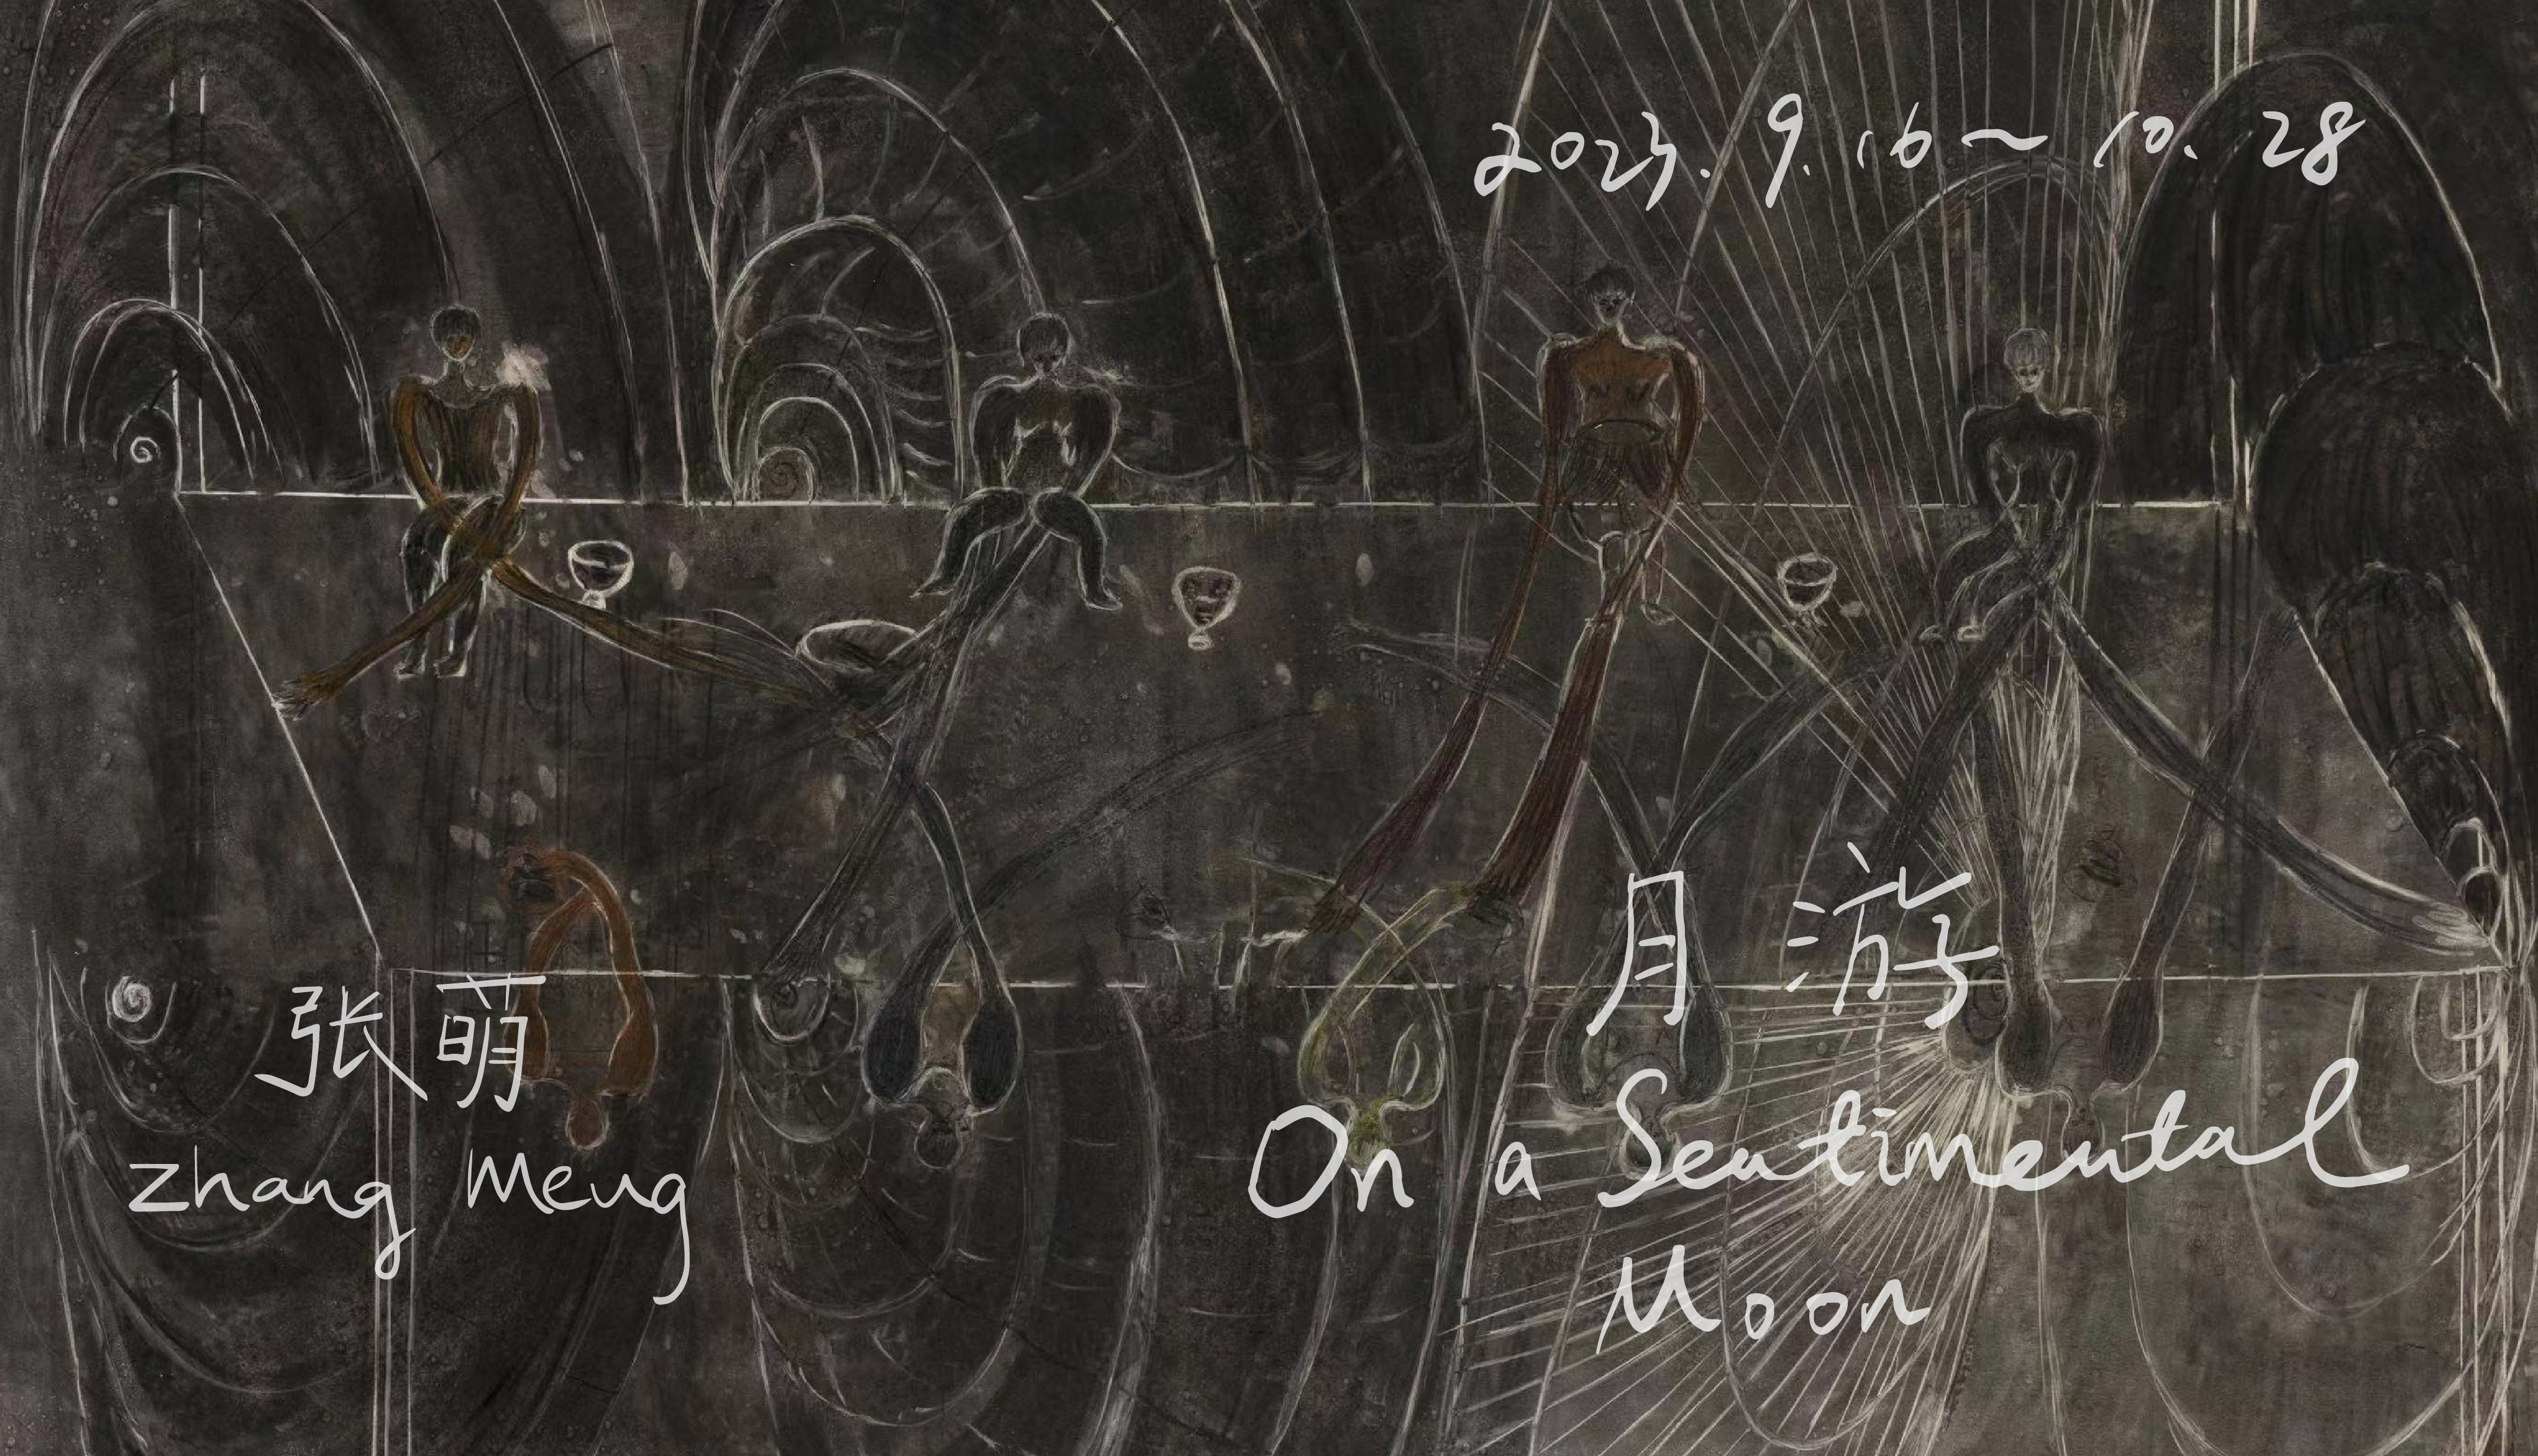 2023.9.16~10.28
张萌
Zhang Meng
月游
On a Sentimental
Moon